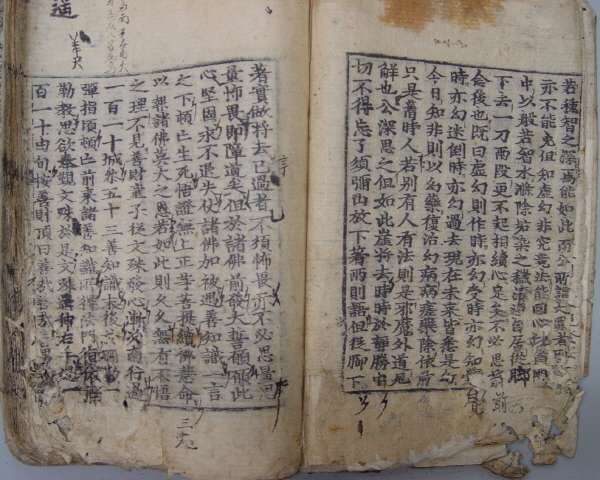 若種智之深焉能如此而公所謂大罪者
亦不能免但知虛幻非究竟法能回心此箇門
中以般若智水滌除垢染之穢清淨自居從脚
下去一刀兩段更不起相續心足矣不必思前
念後也旣曰虛幻則作時亦幻受時亦幻知覺
時亦幻迷倒時亦幻過去現在未來皆悉是幻
今日知非則以幻藥復治幻病病瘥藥除依前
只是舊時人若別有人有法則是邪魔外道見
解也公深思之但如此崖將去時時於靜勝中
切不得忘了須彌山放下著兩則語但從脚下
著實做將去已過者不須怖畏亦不必思量思
量怖畏即障道矣但於諸佛前發大誓願願此
心堅固永不退失仗諸佛加被遇善知識一言
之下頓亡生死悟證無上正等菩提續佛慧命
以報諸佛莫大之恩若如此則久久無有不悟
之理不見善財童子從文殊發心漸次南行過
一百一十城參五十三善知識末後於彌勒一
彈指頃頓亡前來諸善知識所得法門復依彌
勒敎思欲奉覲文殊於是文殊遙伸右手過一
百一十由旬按善財頂曰善哉善哉善男
三十九